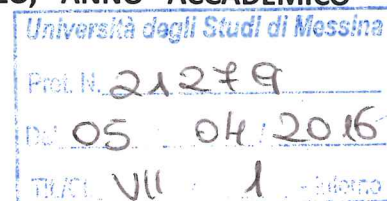 ANNO ACCADEMICO
Università degli Studi di Messina
Prot. N. 21279
Del 05 04 2016
Tit/Cl. VII 1 - Interno